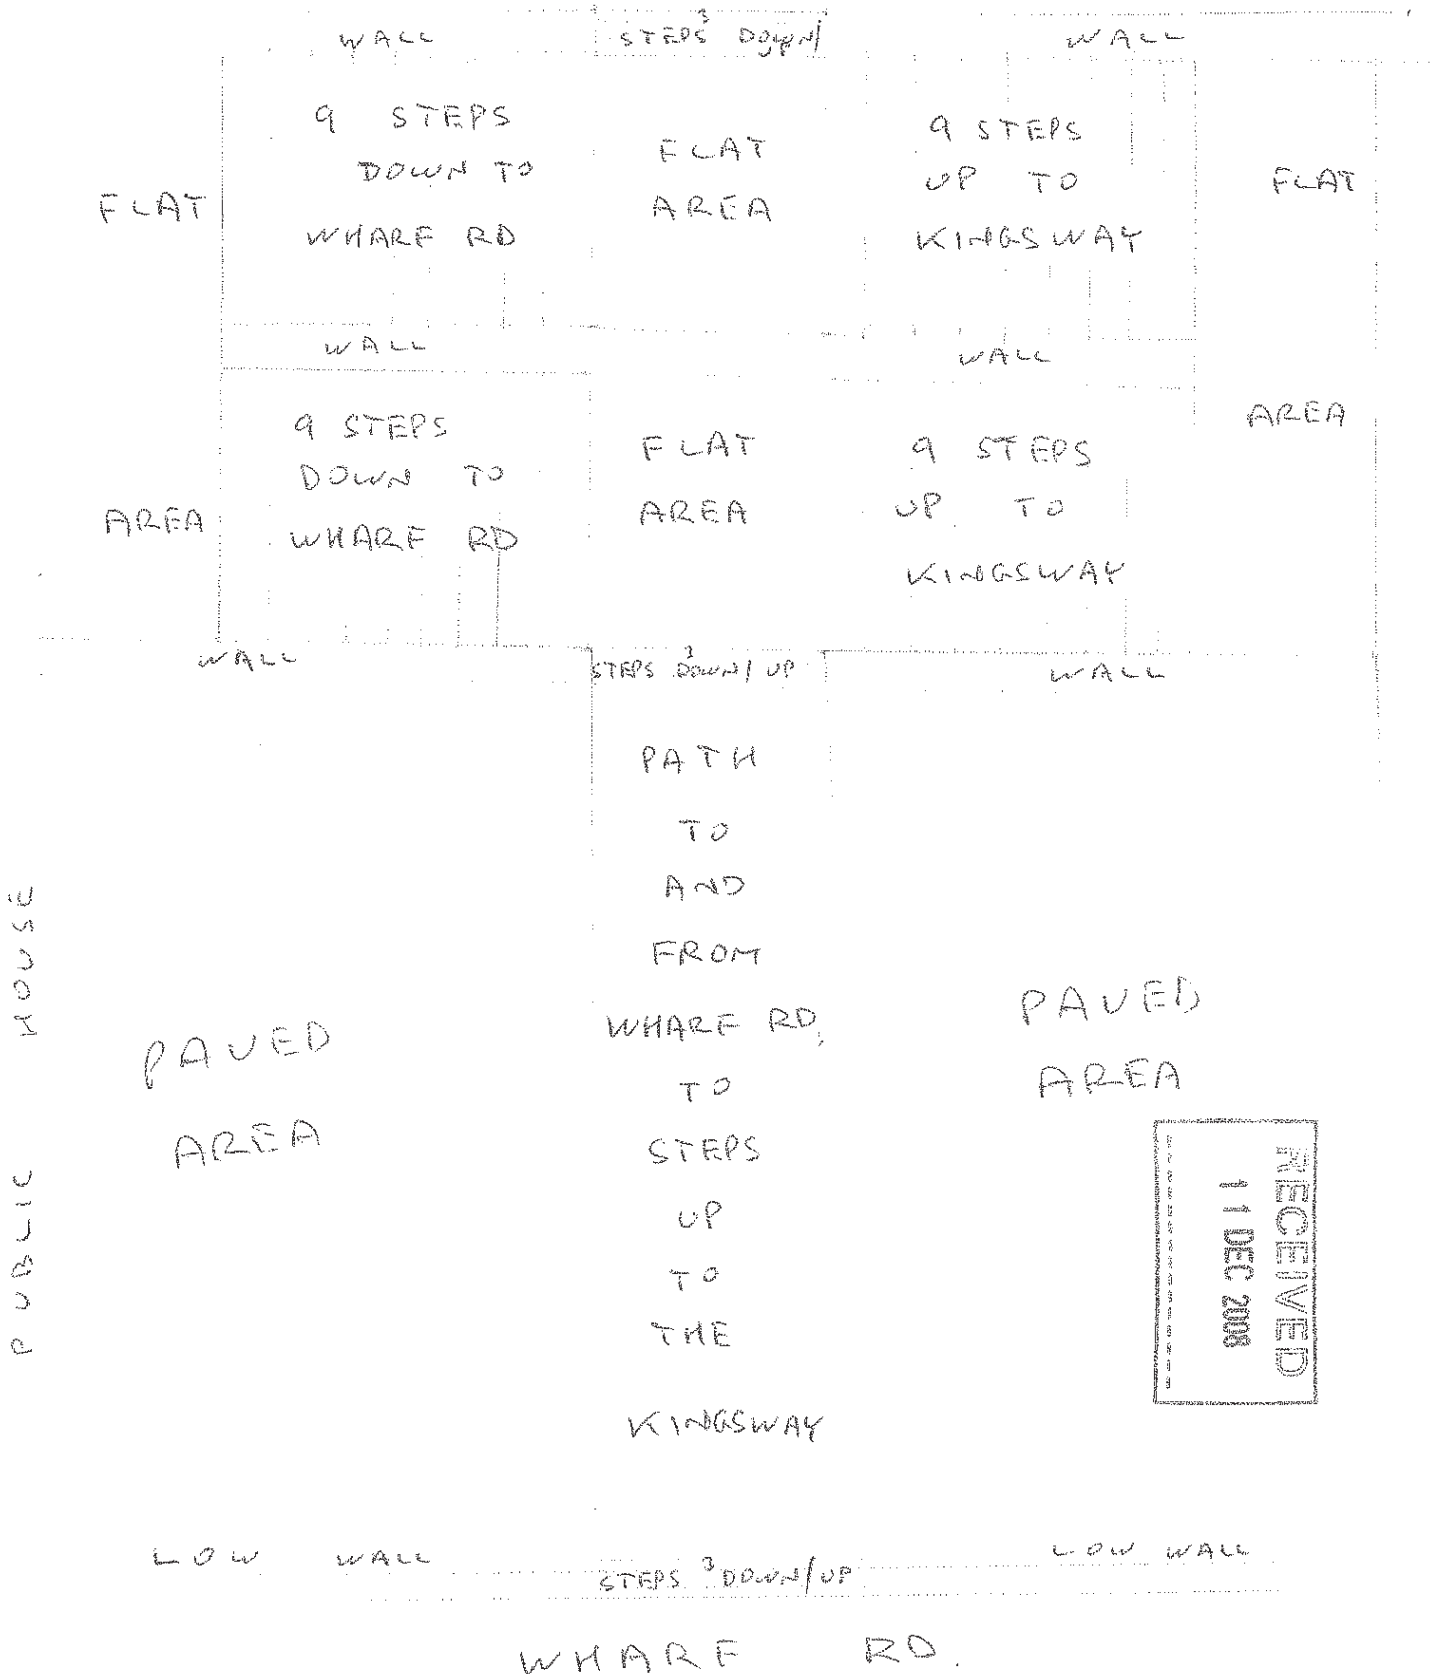 WALL
3
STEPS DOWN/
WALL
9 STEPS
DOWN TO
WHARF RD
FLAT
AREA
9 STEPS
UP TO
KINGSWAY
FLAT
FLAT
WALL
WALL
9 STEPS
DOWN TO
WHARF RD
FLAT
AREA
9 STEPS
UP TO
KINGSWAY
AREA
AREA
WALL
3
STEPS DOWN/UP
WALL
PATH
TO
AND
FROM
WHARF RD,
TO
STEPS
UP
TO
THE
KINGSWAY
PUBLIC HOUSE
PAVED
AREA
PAVED
AREA
RECEIVED
11 DEC 2008
LOW WALL
3
STEPS DOWN/UP
LOW WALL
WHARF RD.